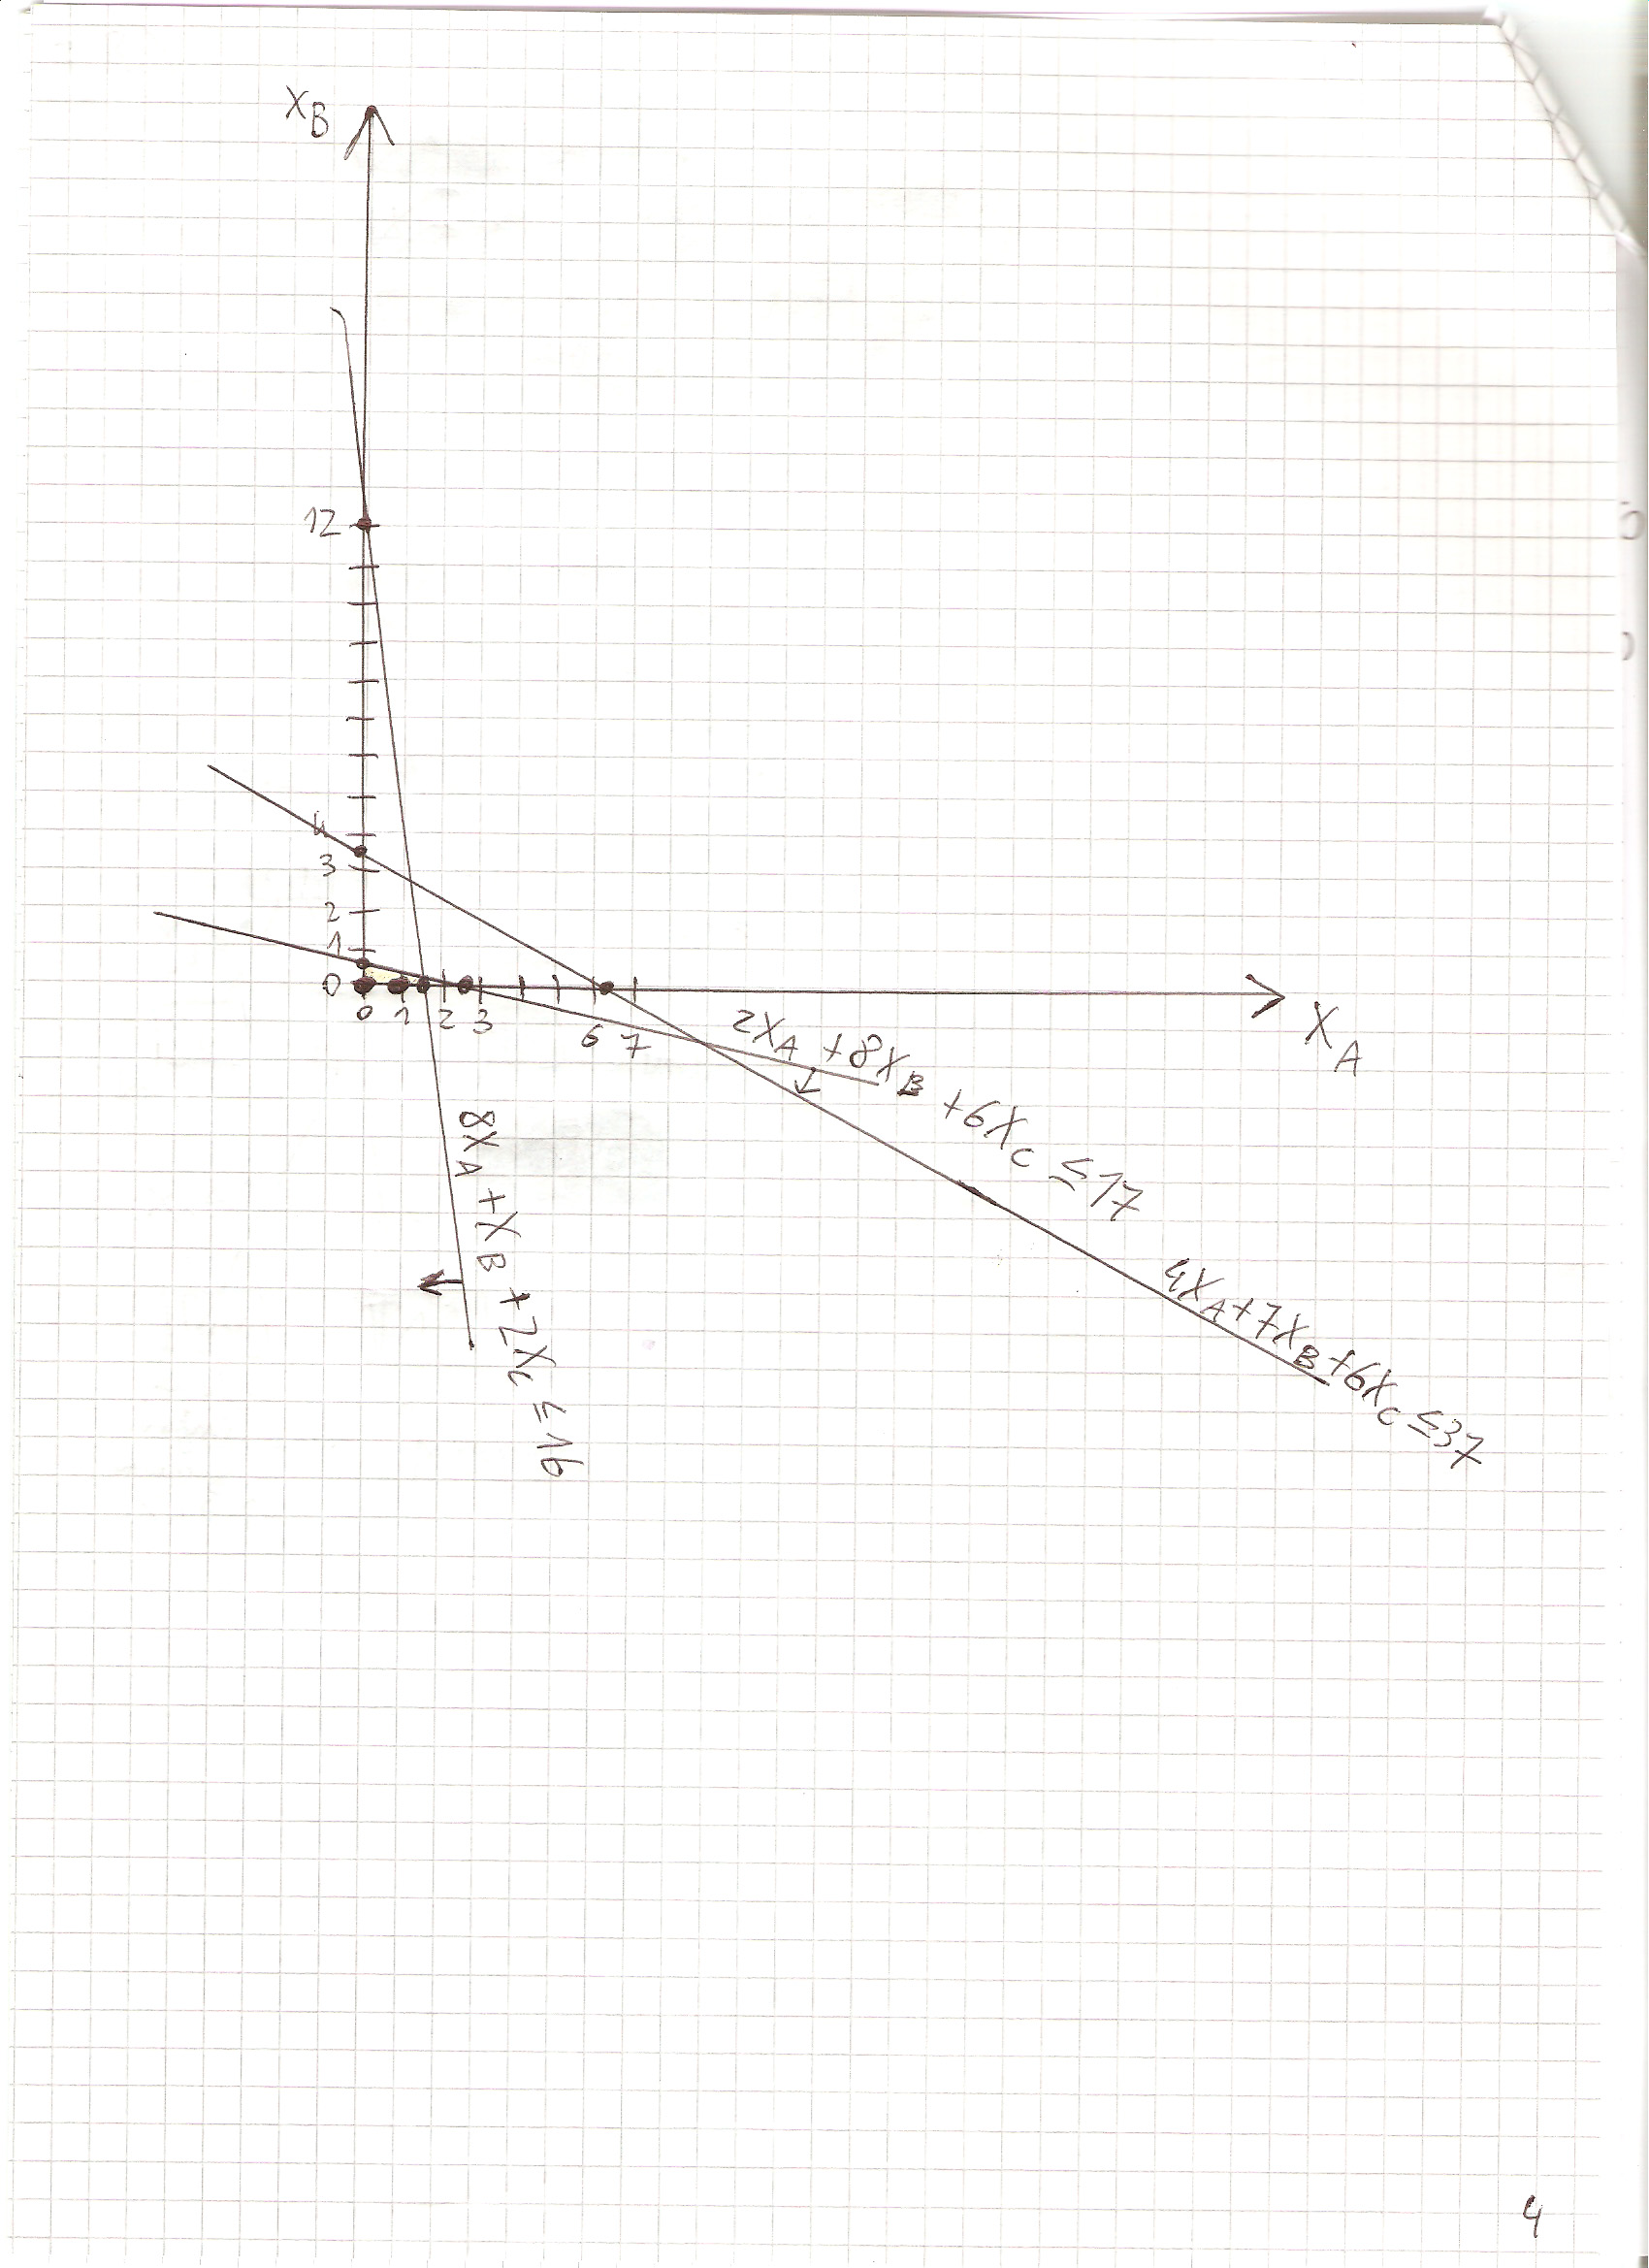 X_B
12
4
3
2
1
0
0 1 2 3 6 7
X_A
2X_A + 8X_B + 6X_C ≤ 17
8X_A + X_B + 2X_C ≤ 16
4X_A + 7X_B + 6X_C ≤ 37
4